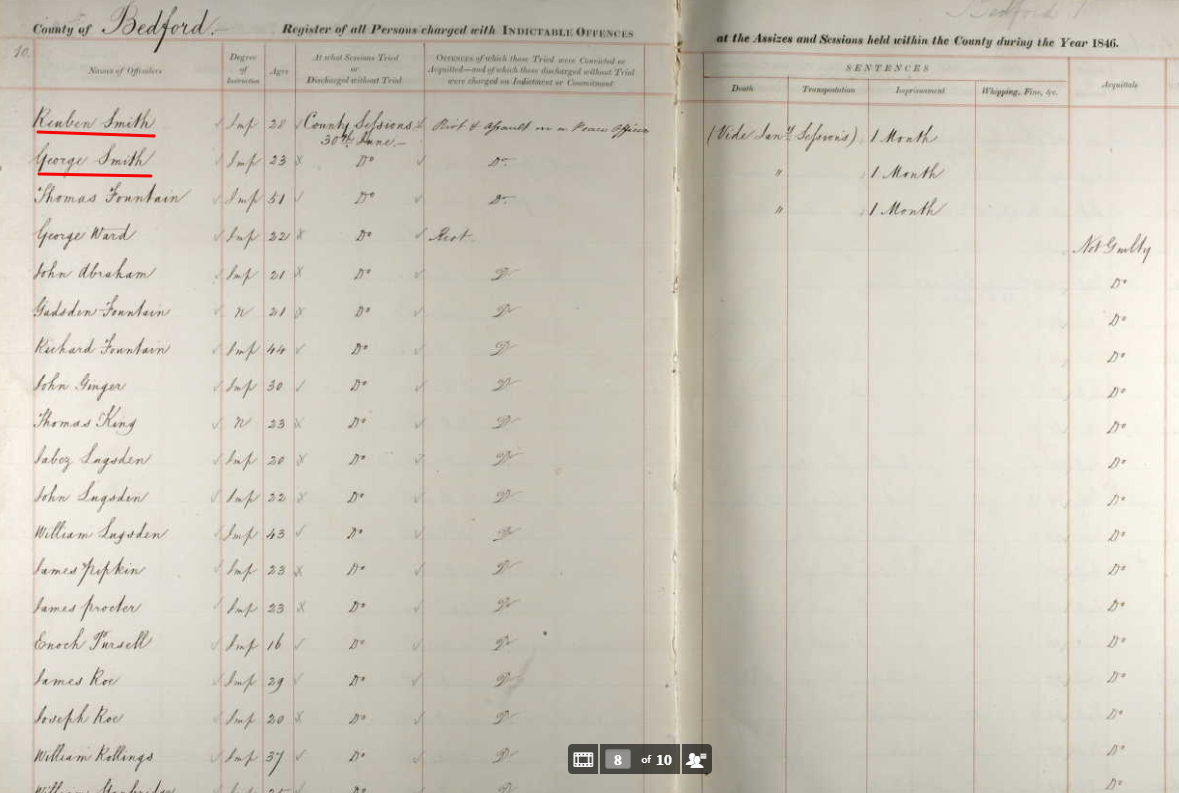 County of Bedford. Register of all Persons charged with INDICTABLE OFFENCES at the Assizes and Sessions held within the County during the Year 1846.
10.
Names of Offenders Degree of Instruction Ages At what Sessions Tried or Discharged without Trial OFFENCES of which those Tried were Convicted or Acquitted—and of which those discharged without Trial were charged on Indictment or Commitment SENTENCES Death Transportation Imprisonment Whipping, Fine, &c. Acquittals
Reuben Smith Imp 28 County Sessions 30th June Riot & Assault on a Peace Officer (Vide Jany. Sessions) 1 Month
George Smith Imp 23 Do Do " 1 Month
Thomas Fountain Imp 51 Do Do " 1 Month
George Ward Imp 22 Do Riot Not Guilty
John Abraham Imp 21 Do Do Do
Gadsden Fountain N 21 Do Do Do
Richard Fountain Imp 44 Do Do Do
John Ginger Imp 30 Do Do Do
Thomas King N 23 Do Do Do
Jabez Lugsden Imp 20 Do Do Do
John Lugsden Imp 22 Do Do Do
William Lugsden Imp 43 Do Do Do
James Pipkin Imp 23 Do Do Do
James Procter Imp 23 Do Do Do
Enoch Pursell Imp 16 Do Do Do
James Roe Imp 29 Do Do Do
Joseph Roe Imp 20 Do Do Do
William Rollings Imp 37 Do Do Do
William Do Do Do
8 of 10